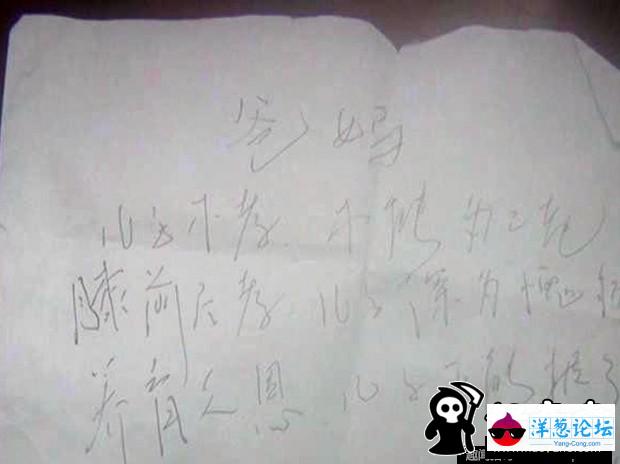 爸妈
儿子不孝 不能为二老
膝前尽孝 儿子深为愧
养育之恩 儿子不能报
洋葱论坛
Yang-Cong.com